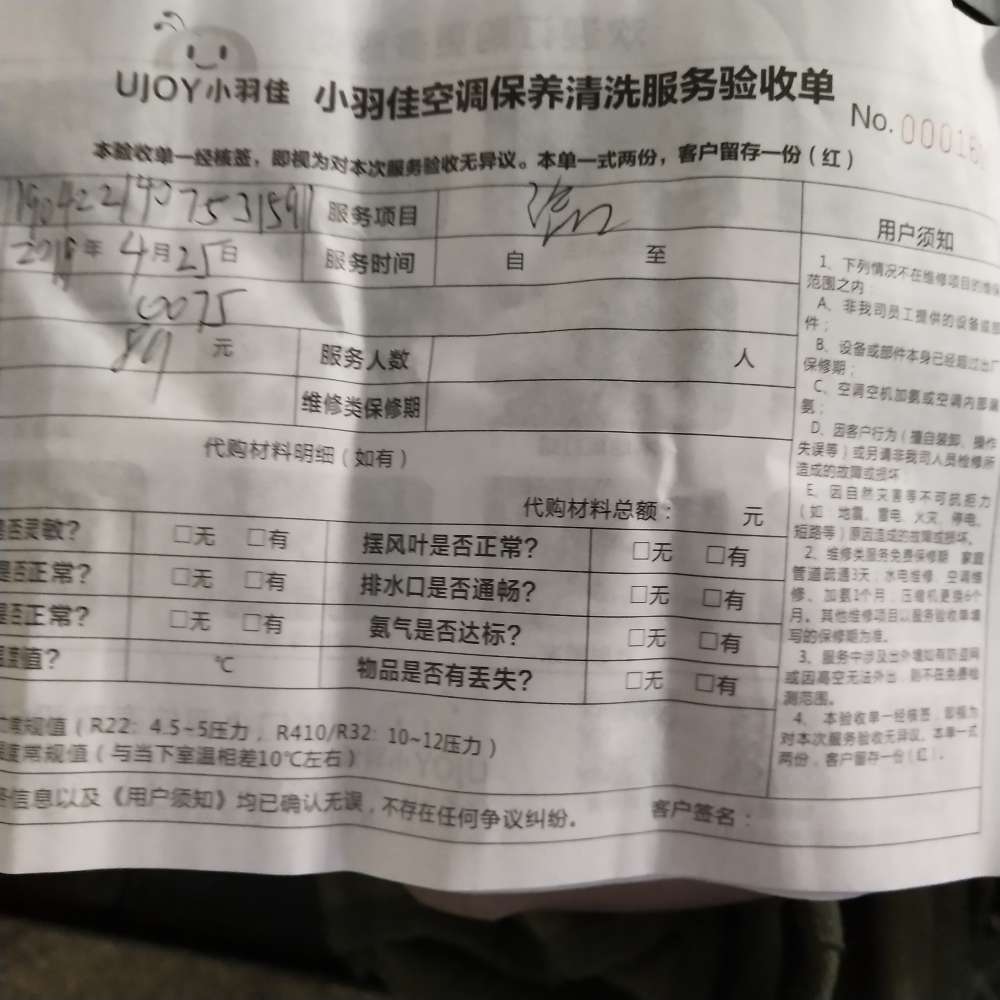 UJOY小羽佳 小羽佳空调保养清洗服务验收单
No. 00016
本验收单一经核签，即视为对本次服务验收无异议。本单一式两份，客户留存一份（红）
服务项目
年 4月25日 服务时间 自 至
0075
元 服务人数 人
维修类保修期
代购材料明细（如有）
代购材料总额： 元
是否灵敏？ □无 □有 摆风叶是否正常？ □无 □有
是否正常？ □无 □有 排水口是否通畅？ □无 □有
是否正常？ □无 □有 氨气是否达标？ □无 □有
温度值？ ℃ 物品是否有丢失？ □无 □有
常规值（R22：4.5~5压力，R410/R32：10~12压力）
温度常规值（与当下室温相差10℃左右）
信息以及《用户须知》均已确认无误，不存在任何争议纠纷。 客户签名：
用户须知
1、下列情况不在维修项目的维保
范围之内：
A、非我司员工提供的设备或部
件；
B、设备或部件本身已经超过出厂
保修期；
C、空调空机加氨或空调内部漏
氨；
D、因客户行为（擅自装卸、操作
失误等）或另请非我司人员检修所
造成的故障或损坏
E、因自然灾害等不可抗拒力
（如：地震、雷电、火灾、停电、
短路等）原因造成的故障或损坏。
2、维修类服务免费保修期：家庭
管道疏通3天，水电维修、空调维
修、加氨1个月，压缩机更换6个
月。其他维修项目以服务验收单填
写的保修期为准。
3、服务中涉及出外墙如有防盗网
或因高空无法外出，则不在免费检
测范围。
4、本验收单一经核签，即视为
对本次服务验收无异议。本单一式
两份，客户留存一份（红）。